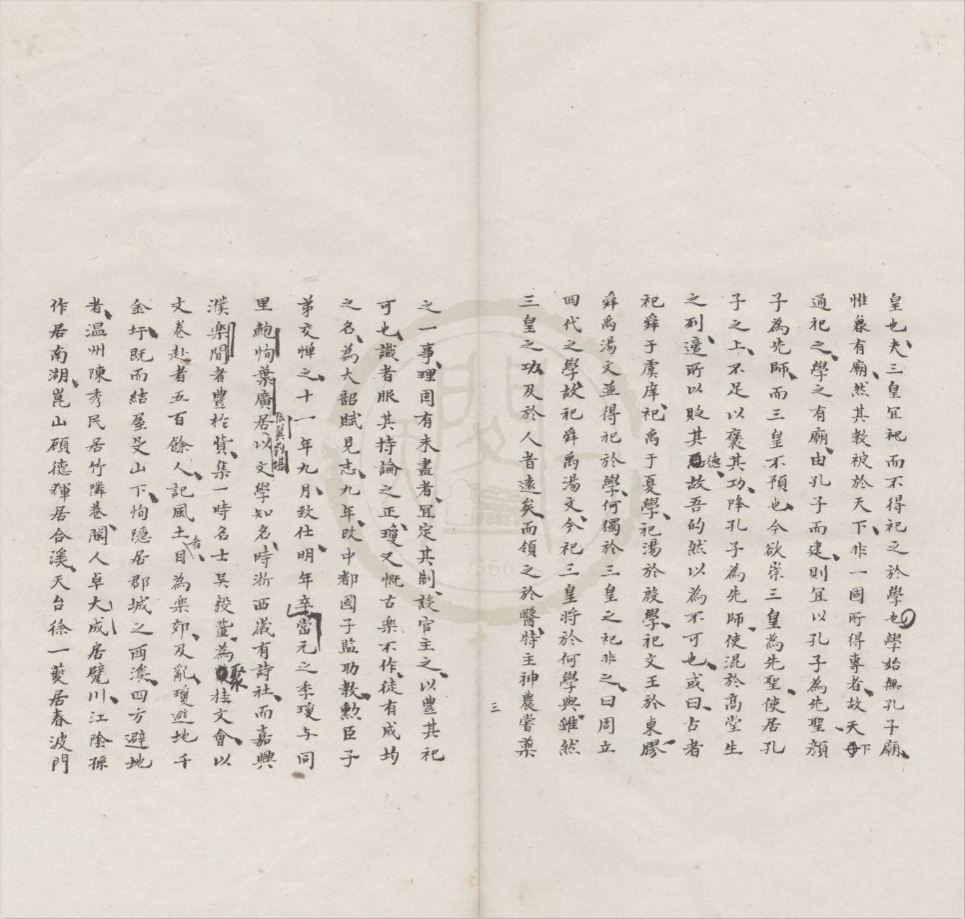 皇也夫三皇宜祀而不得祀之於學也學始無孔子廟
惟泉有廟然其教被於天下非一國所得專者故天下
通祀之學之有廟由孔子而建則宜以孔子為先聖顏
子為先師而三皇不預也今欲崇三皇為先聖使居孔
子之上不足以襃其功降孔子為先師使混於高堂生
之列適所以貶其德故吾的然以為不可也或曰古者
祀舜于虞庠祀禹于夏學祀湯於殷學祀文王於東膠
舜禹湯文並得祀於學何獨於三皇之祀非之曰周立
四代之學故祀舜禹湯文今祀三皇將於何學與雖然
三皇之功及於人者遠矣而領之於醫特主神農嘗藥
三
之一事理固有未盡者宜定其制設官主之以豐其祀
可也識者服其持論之正瓊又慨古樂不作徒有成均
之名為大韶賦見志九年改中都國子監助教勲臣子
弟交憚之十一年九月致仕明年卒當元之季瓊与同
里鮑恂葉廣居以文學知名時浙西歲有詩社而嘉興
濮樂閒者豐於貲集一時名士吳毅軰為聚桂文會以
文卷赴者五百餘人記風土者目為樂郊及亂瓊避地千
金圩既而結屋殳山下恂隱居郡城之西溪四方避地
者温州陳秀民居竹隣巷閩人卓大成居甓川江陰孫
作居南湖崑山顧德輝居合溪天台徐一夔居春波門